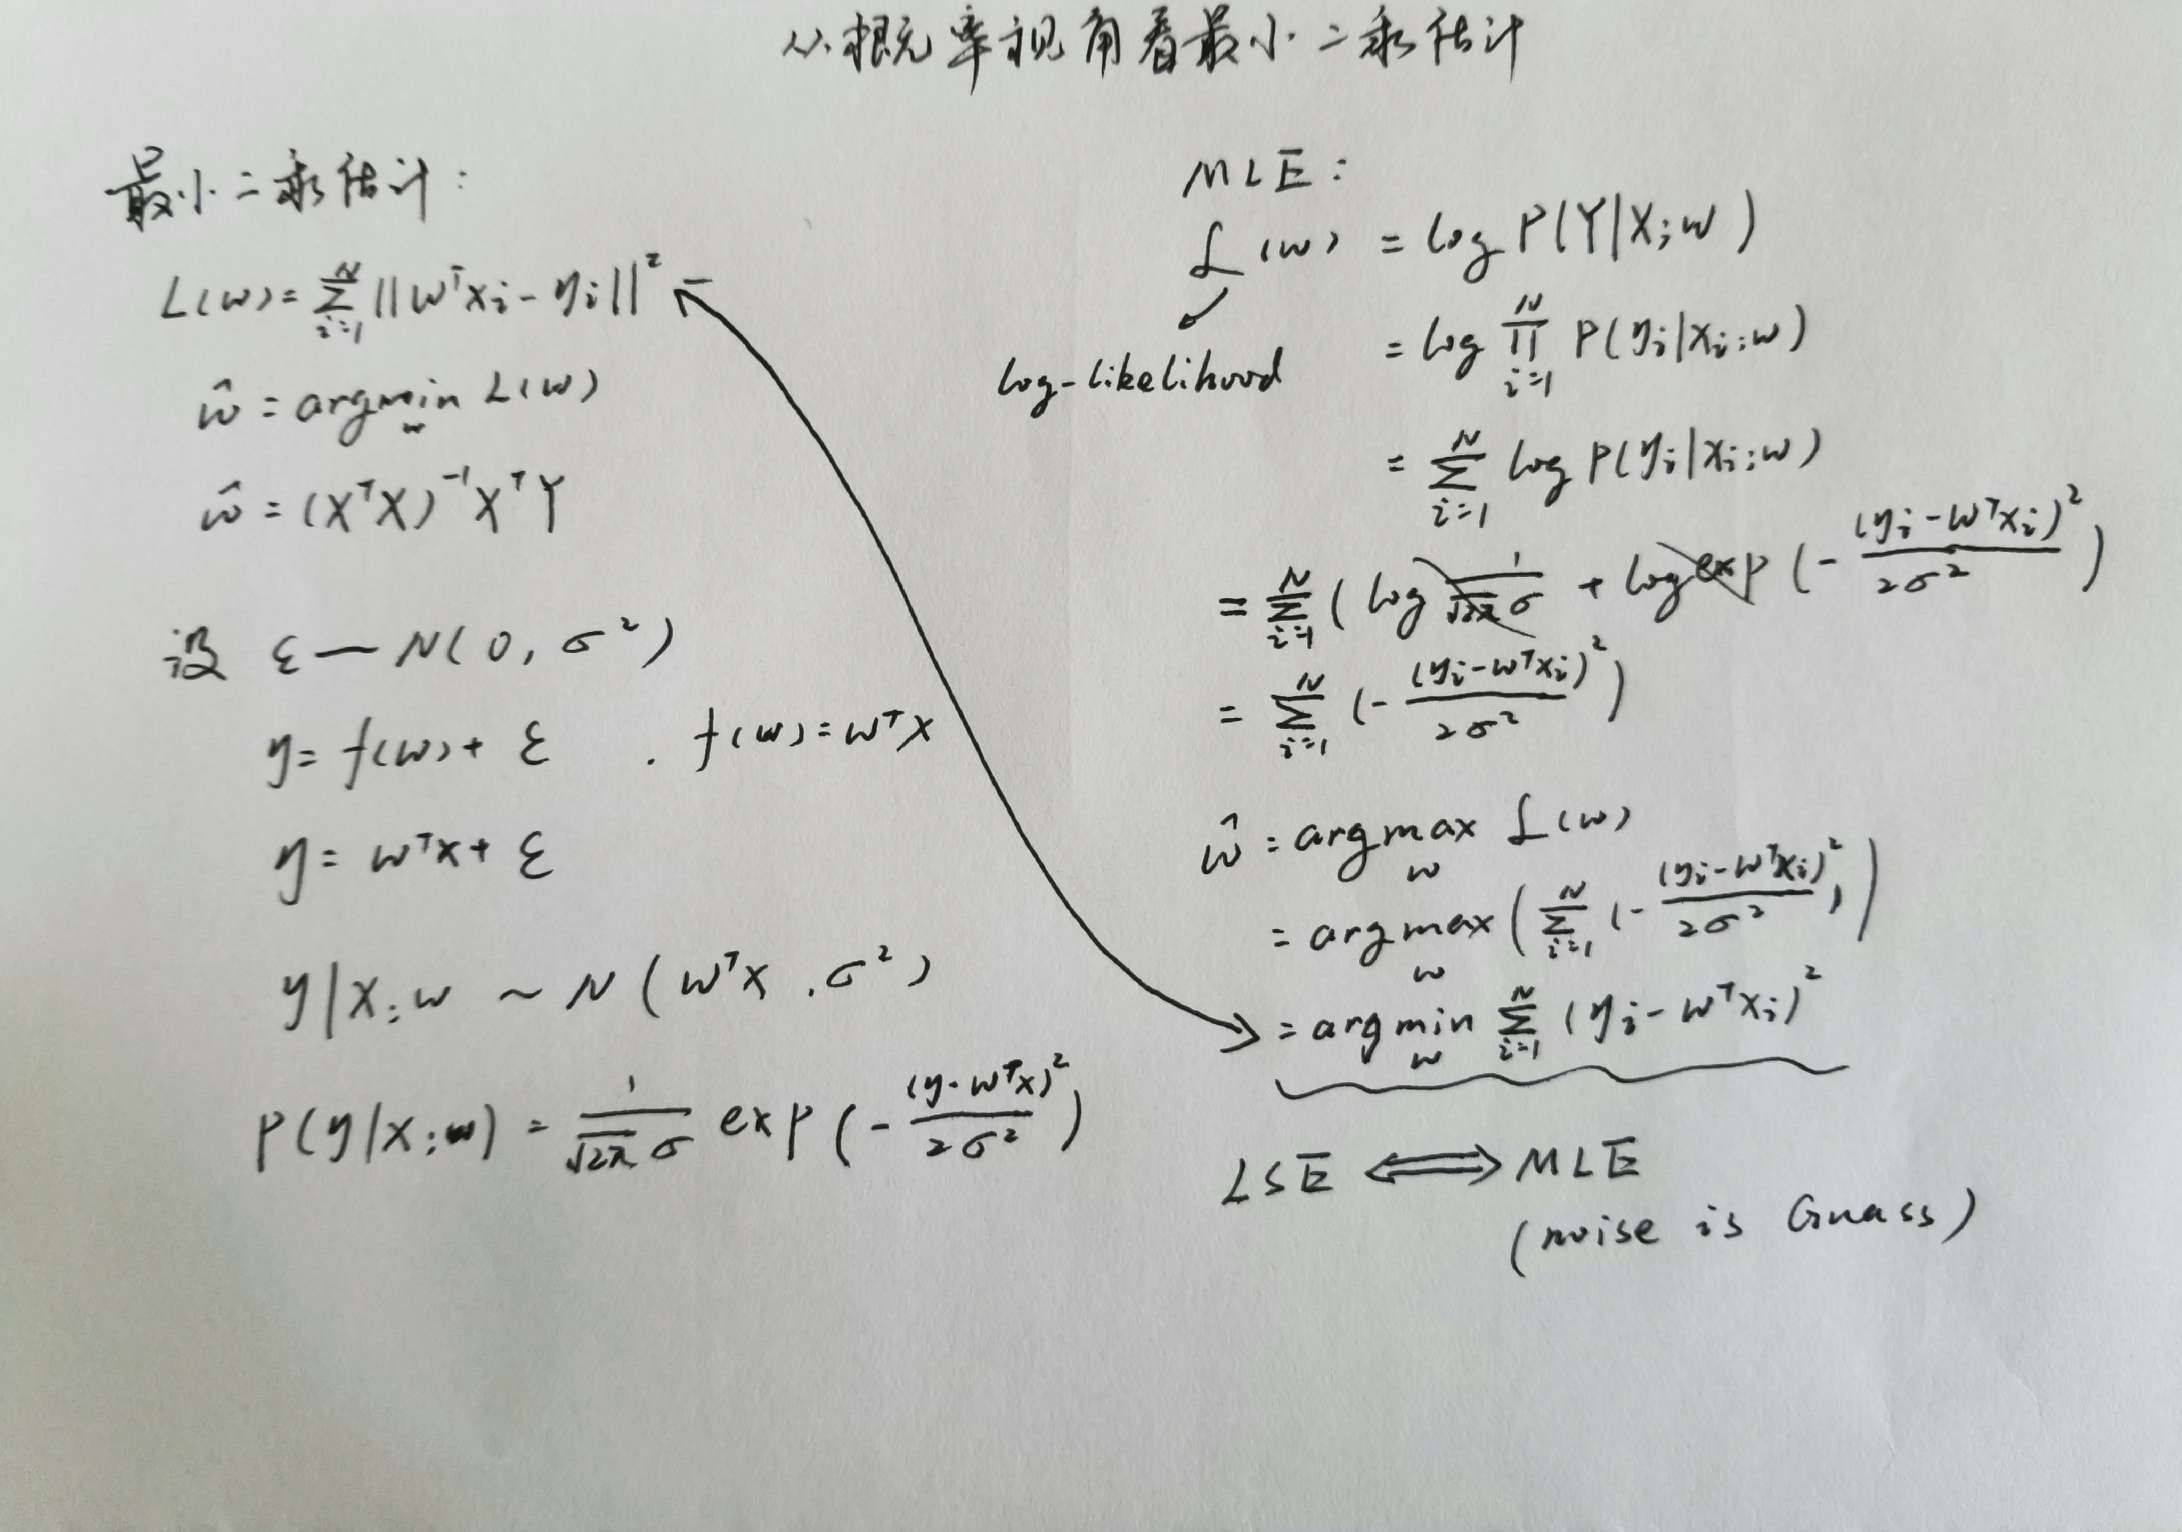 从概率视角看最小二乘估计
最小二乘估计:
L(w)=∑_{i=1}^{N}||w^T x_i - y_i||^2 -
ŵ = argmin_w L(w)
ŵ = (X^T X)^{-1} X^T Y
设 ε — N(0, σ^2)
y = f(w) + ε . f(w) = w^T x
y = w^T x + ε
y|x;w ~ N(w^T x, σ^2)
P(y|x;w) = \frac{1}{\sqrt{2π}σ} exp(-\frac{(y-w^T x)^2}{2σ^2})
MLE:
ℒ(w) = log P(Y|X;w)
log-likelihood
= log ∏_{i=1}^{N} P(y_i|x_i;w)
= ∑_{i=1}^{N} log P(y_i|x_i;w)
= ∑_{i=1}^{N} (log \frac{1}{\sqrt{2π}σ} + log exp(-\frac{(y_i-w^T x_i)^2}{2σ^2})
= ∑_{i=1}^{N} (-\frac{(y_i-w^T x_i)^2}{2σ^2})
ŵ = argmax_w ℒ(w)
= argmax_w (∑_{i=1}^{N} (-\frac{(y_i-w^T x_i)^2}{2σ^2}))
= argmin_w ∑_{i=1}^{N} (y_i - w^T x_i)^2
LSE ⟺ MLE
(noise is Guass)